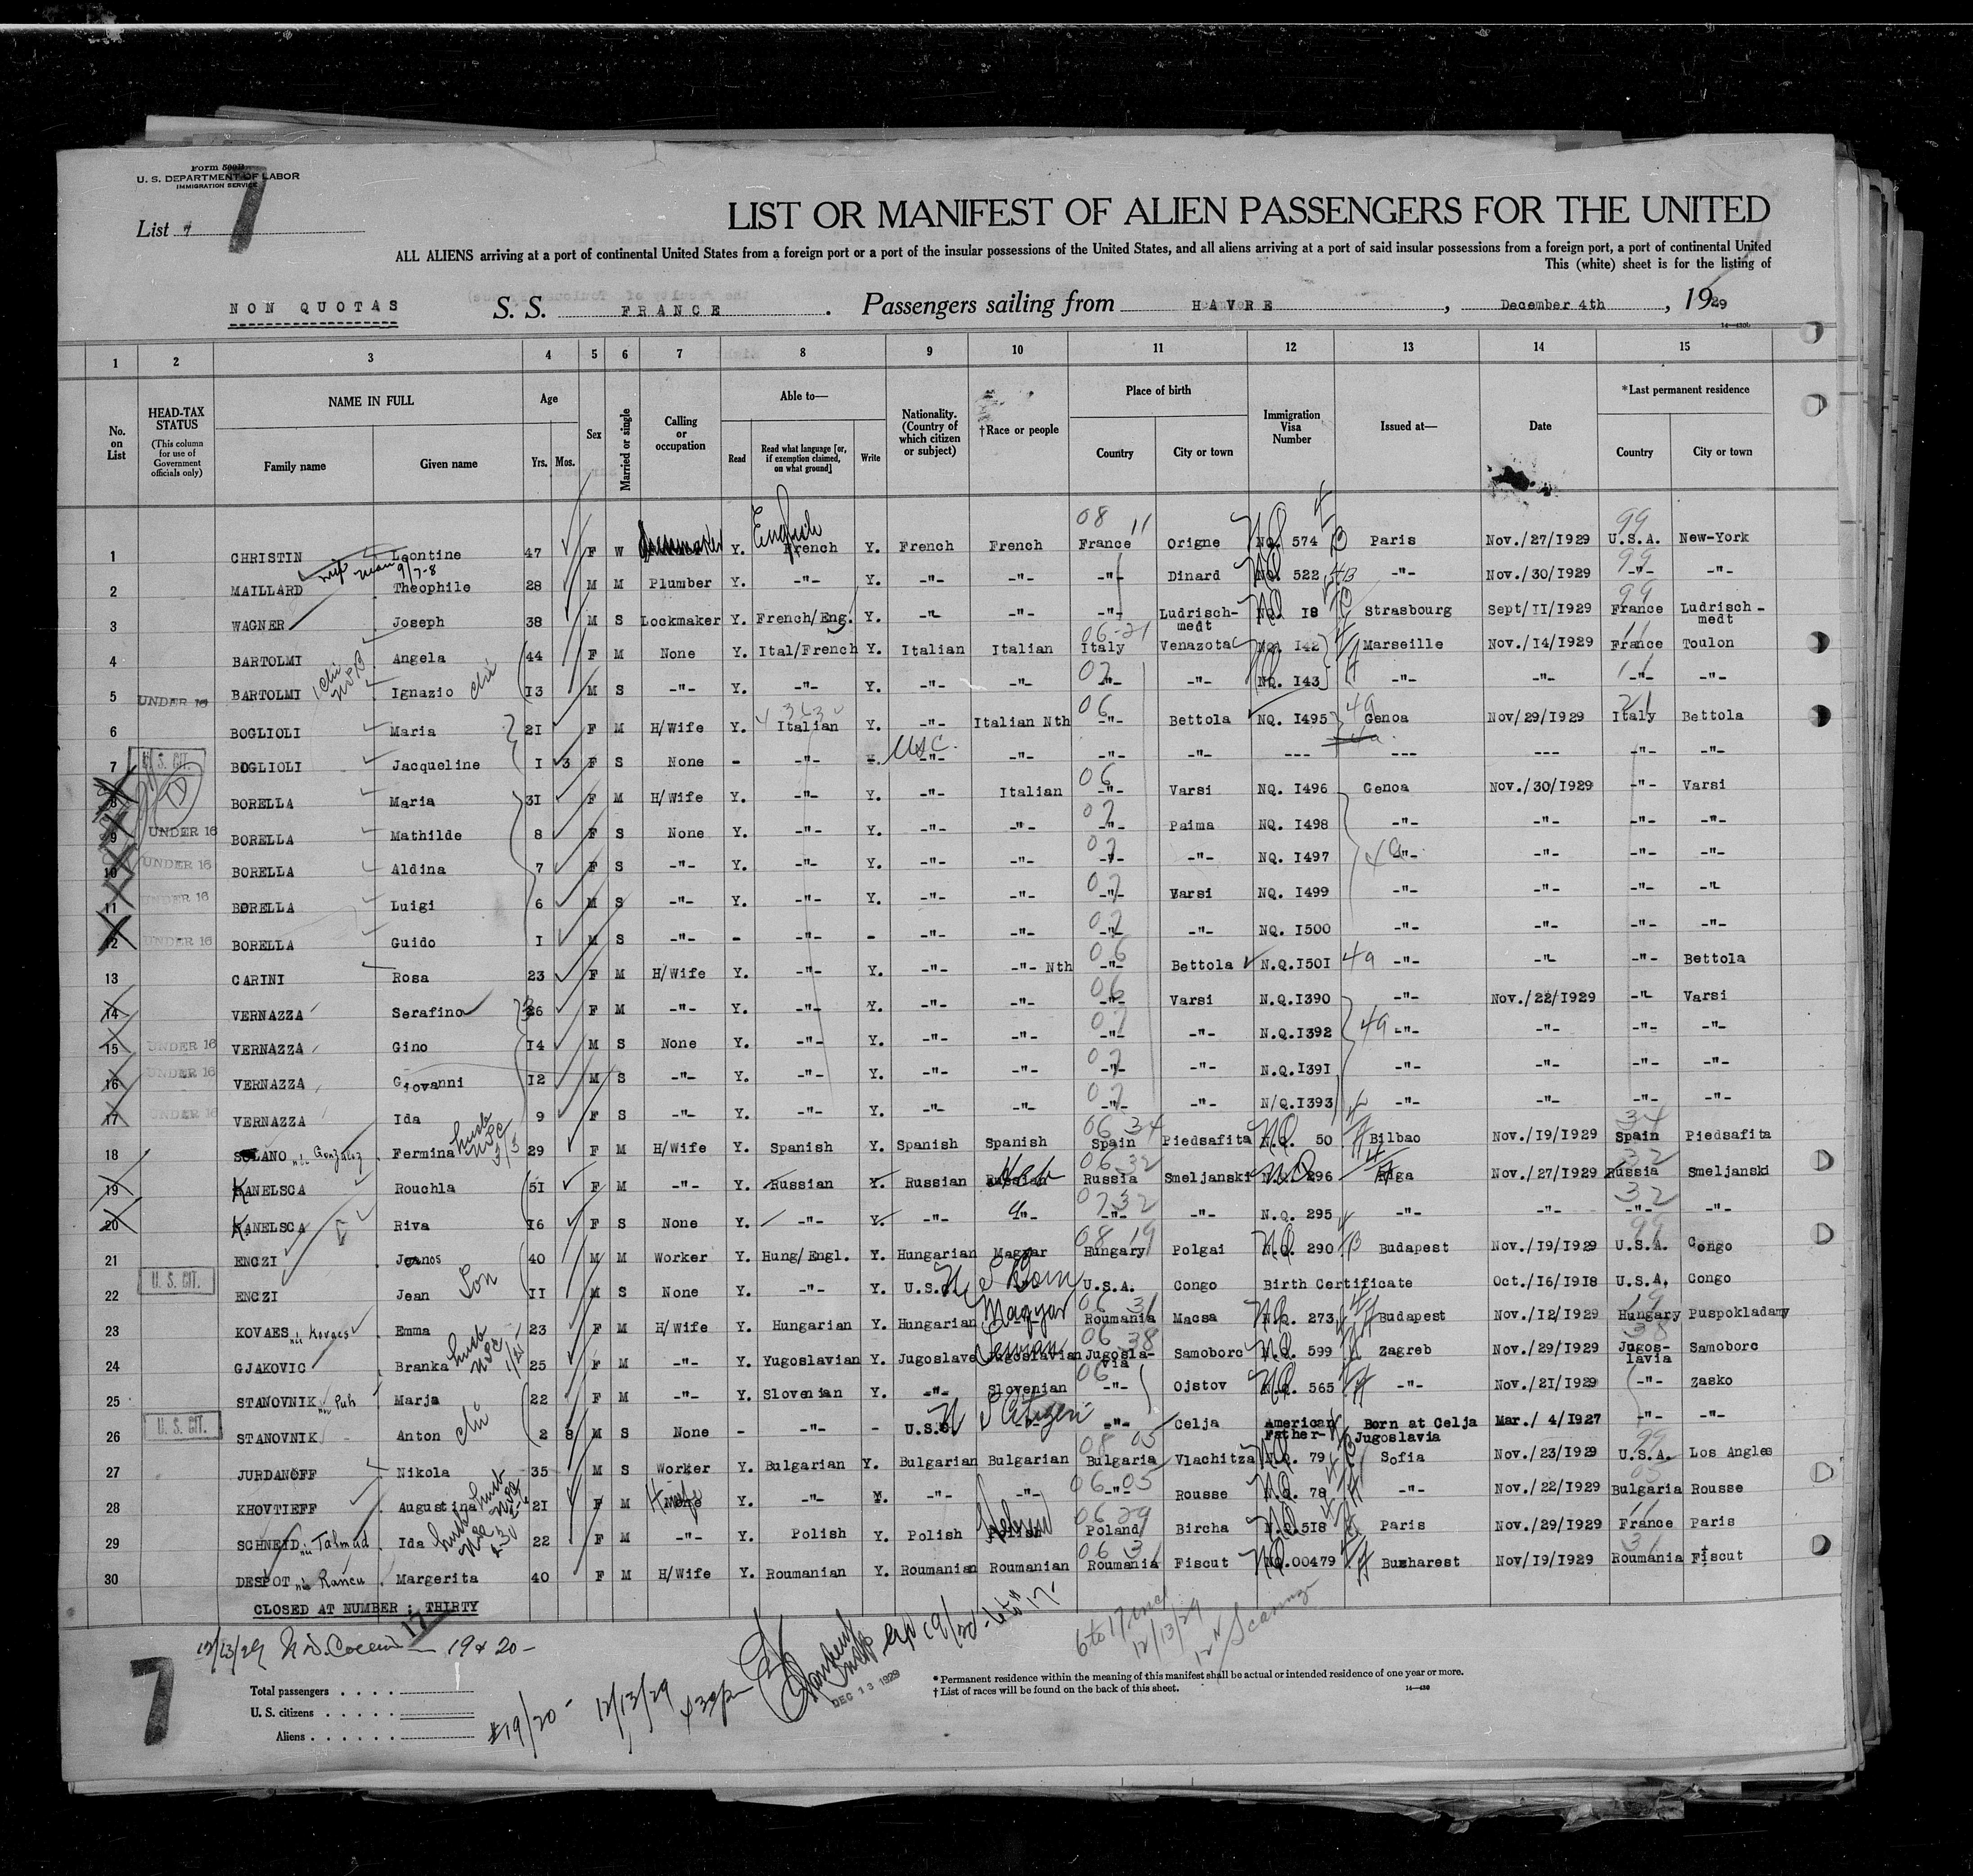 Form 500B
U. S. DEPARTMENT OF LABOR
IMMIGRATION SERVICE
7
List 7
LIST OR MANIFEST OF ALIEN PASSENGERS FOR THE UNITED
ALL ALIENS arriving at a port of continental United States from a foreign port or a port of the insular possessions of the United States, and all aliens arriving at a port of said insular possessions from a foreign port, a port of continental United
This (white) sheet is for the listing of
NON QUOTAS S. S. FRANCE . Passengers sailing from HAVRE , December 4th , 1929
1 2 3 4 5 6 7 8 9 10 11 12 13 14 15
No. on List HEAD-TAX STATUS (This column for use of Government officials only) NAME IN FULL Family name Given name Age Yrs. Mos. Sex Married or single Calling or occupation Able to— Read Read what language [or, if exemption claimed, on what ground] Write Nationality. (Country of which citizen or subject) †Race or people Place of birth Country City or town Immigration Visa Number Issued at— Date *Last permanent residence Country City or town
1 CHRISTIN Leontine 47 F W dressmaker Y. English French Y. French French France Origne NQ. 574 Paris Nov./27/1929 U.S.A. New-York
2 MAILLARD Theophile 28 M M Plumber Y. -"- Y. -"- -"- -"- Dinard NQ. 522 -"- Nov./30/1929 -"- -"-
3 WAGNER Joseph 38 M S Lockmaker Y. French/Eng. Y. -"- -"- -"- Ludrisch-medt NQ. 18 Strasbourg Sept/11/1929 France Ludrisch-medt
4 BARTOLMI Angela 44 F M None Y. Ital/French Y. Italian Italian Italy Venazota NQ. 142 Marseille Nov./14/1929 France Toulon
5 UNDER 16 BARTOLMI Ignazio 13 M S -"- Y. -"- Y. -"- -"- -"- -"- NQ. 143 -"- -"- -"- -"-
6 BOGLIOLI Maria 21 F M H/Wife Y. Italian Y. -"- Italian Nth -"- Bettola NQ. 1495 Genoa Nov/29/1929 Italy Bettola
7 U. S. CIT. BOGLIOLI Jacqueline 1 3 F S None - -"- USC. -"- -"- -"- -"- --- --- --- -"- -"-
8 BORELLA Maria 31 F M H/Wife Y. -"- Y. -"- Italian -"- Varsi NQ. 1496 Genoa Nov./30/1929 -"- Varsi
9 UNDER 16 BORELLA Mathilde 8 F S None Y. -"- Y. -"- -"- -"- Paima NQ. 1498 -"- -"- -"- -"-
10 UNDER 16 BORELLA Aldina 7 F S -"- Y. -"- Y. -"- -"- -"- -"- NQ. 1497 -"- -"- -"- -"-
11 UNDER 16 BORELLA Luigi 6 M S -"- Y. -"- Y. -"- -"- -"- Varsi NQ. 1499 -"- -"- -"- -"-
12 UNDER 16 BORELLA Guido 1 M S -"- - -"- - -"- -"- -"- -"- NQ. 1500 -"- -"- -"- -"-
13 CARINI Rosa 23 F M H/Wife Y. -"- Y. -"- -"- Nth -"- Bettola N.Q.1501 -"- -"- -"- Bettola
14 VERNAZZA Serafino 36 F M -"- Y. -"- Y. -"- -"- -"- Varsi N.Q.1390 -"- Nov./22/1929 -"- Varsi
15 UNDER 16 VERNAZZA Gino 14 M S None Y. -"- Y. -"- -"- -"- -"- N.Q.1392 -"- -"- -"- -"-
16 UNDER 16 VERNAZZA Giovanni 12 M S -"- Y. -"- Y. -"- -"- -"- -"- N.Q.1391 -"- -"- -"- -"-
17 UNDER 16 VERNAZZA Ida 9 F S -"- Y. -"- Y. -"- -"- -"- -"- N/Q.1393 -"- -"- -"- -"-
18 SOLANO née Gonzalez Fermina 29 F M H/Wife Y. Spanish Y. Spanish Spanish Spain Piedsafita N.Q. 50 Bilbao Nov./19/1929 Spain Piedsafita
19 KANELSCA Rouchla 51 F M -"- Y. Russian Y. Russian Russian Heb Russia Smeljanski N.Q. 296 Riga Nov./27/1929 Russia Smeljanski
20 KANELSCA Riva 16 F S None Y. -"- Y. -"- -"- -"- -"- N.Q. 295 -"- -"- -"- -"-
21 ENCZI Jeanos 40 M M Worker Y. Hung/Engl. Y. Hungarian Magyar Hungary Polgai N.Q. 290 Budapest Nov./19/1929 U.S.A. Congo
22 U. S. CIT. ENCZI Jean Son 11 M S None Y. -"- Y. U.S. U S Born U.S.A. Congo Birth Certificate Oct./16/1918 U.S.A. Congo
23 KOVAES née Kovacs Emma 23 F M H/Wife Y. Hungarian Y. Hungarian Magyar Roumania Macsa N.Q. 273 Budapest Nov./12/1929 Hungary Puspokladamy
24 GJAKOVIC Branka 25 F M -"- Y. Yugoslavian Y. Jugoslave Jugoslavian Jugosla-via Samoborc N.Q. 599 Zagreb Nov./29/1929 Jugos-lavia Samoborc
25 STANOVNIK née Puh Marja 22 F M -"- Y. Slovenian Y. -"- Slovenian -"- Ojstov N.Q. 565 -"- Nov./21/1929 -"- Zasko
26 U. S. CIT. STANOVNIK Anton 2 8 M S None - -"- - U.S. U S Citizen -"- Celja American Father- Born at Celja Jugoslavia Mar./ 4/1927 -"- -"-
27 JURDANOFF Nikola 35 M S Worker Y. Bulgarian Y. Bulgarian Bulgarian Bulgaria Vlachitza N.Q. 79 Sofia Nov./23/1929 U.S.A. Los Angles
28 KHOVTIEFF Augustina 21 F M None H.wife Y. -"- Y. -"- -"- -"- Rousse N.Q. 78 -"- Nov./22/1929 Bulgaria Rousse
29 SCHNEID née Talmud Ida 22 F M -"- Y. Polish Y. Polish Polish Hebrew Poland Bircha N.Q.518 Paris Nov./29/1929 France Paris
30 DESPOT née Rancu Margerita 40 F M H/Wife Y. Roumanian Y. Roumanian Roumanian Roumania Fiscut NQ.00479 Bucharest Nov/19/1929 Roumania Fiscut
CLOSED AT NUMBER : THIRTY
17
12/13/29 19 & 20 -
6 to 17 incl
12/13/29
#19/20 - 12/13/29
DEC 13 1929
7
Total passengers
U. S. citizens
Aliens
* Permanent residence within the meaning of this manifest shall be actual or intended residence of one year or more.
† List of races will be found on the back of this sheet.